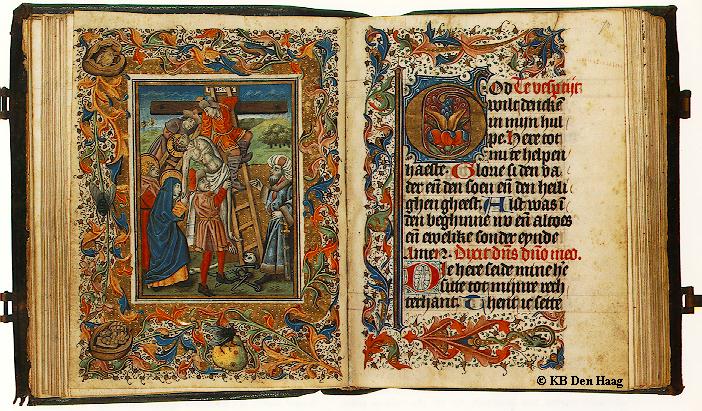 GOD Te vesptijt
wilt denckē
in mijn hul
pe. Here tot
mi te helpen
haeste. Glorie si den va
der eñ den soen eñ den heili
ghen gheest. Alst was ī
den beghinne nv eñ altoes
eñ ewelike sonder eynde
Amen. Dixit dñs dño meo.
Die here seide mine he
sitte tot mijnre rech
terhant. Thent ic sette
© KB Den Haag